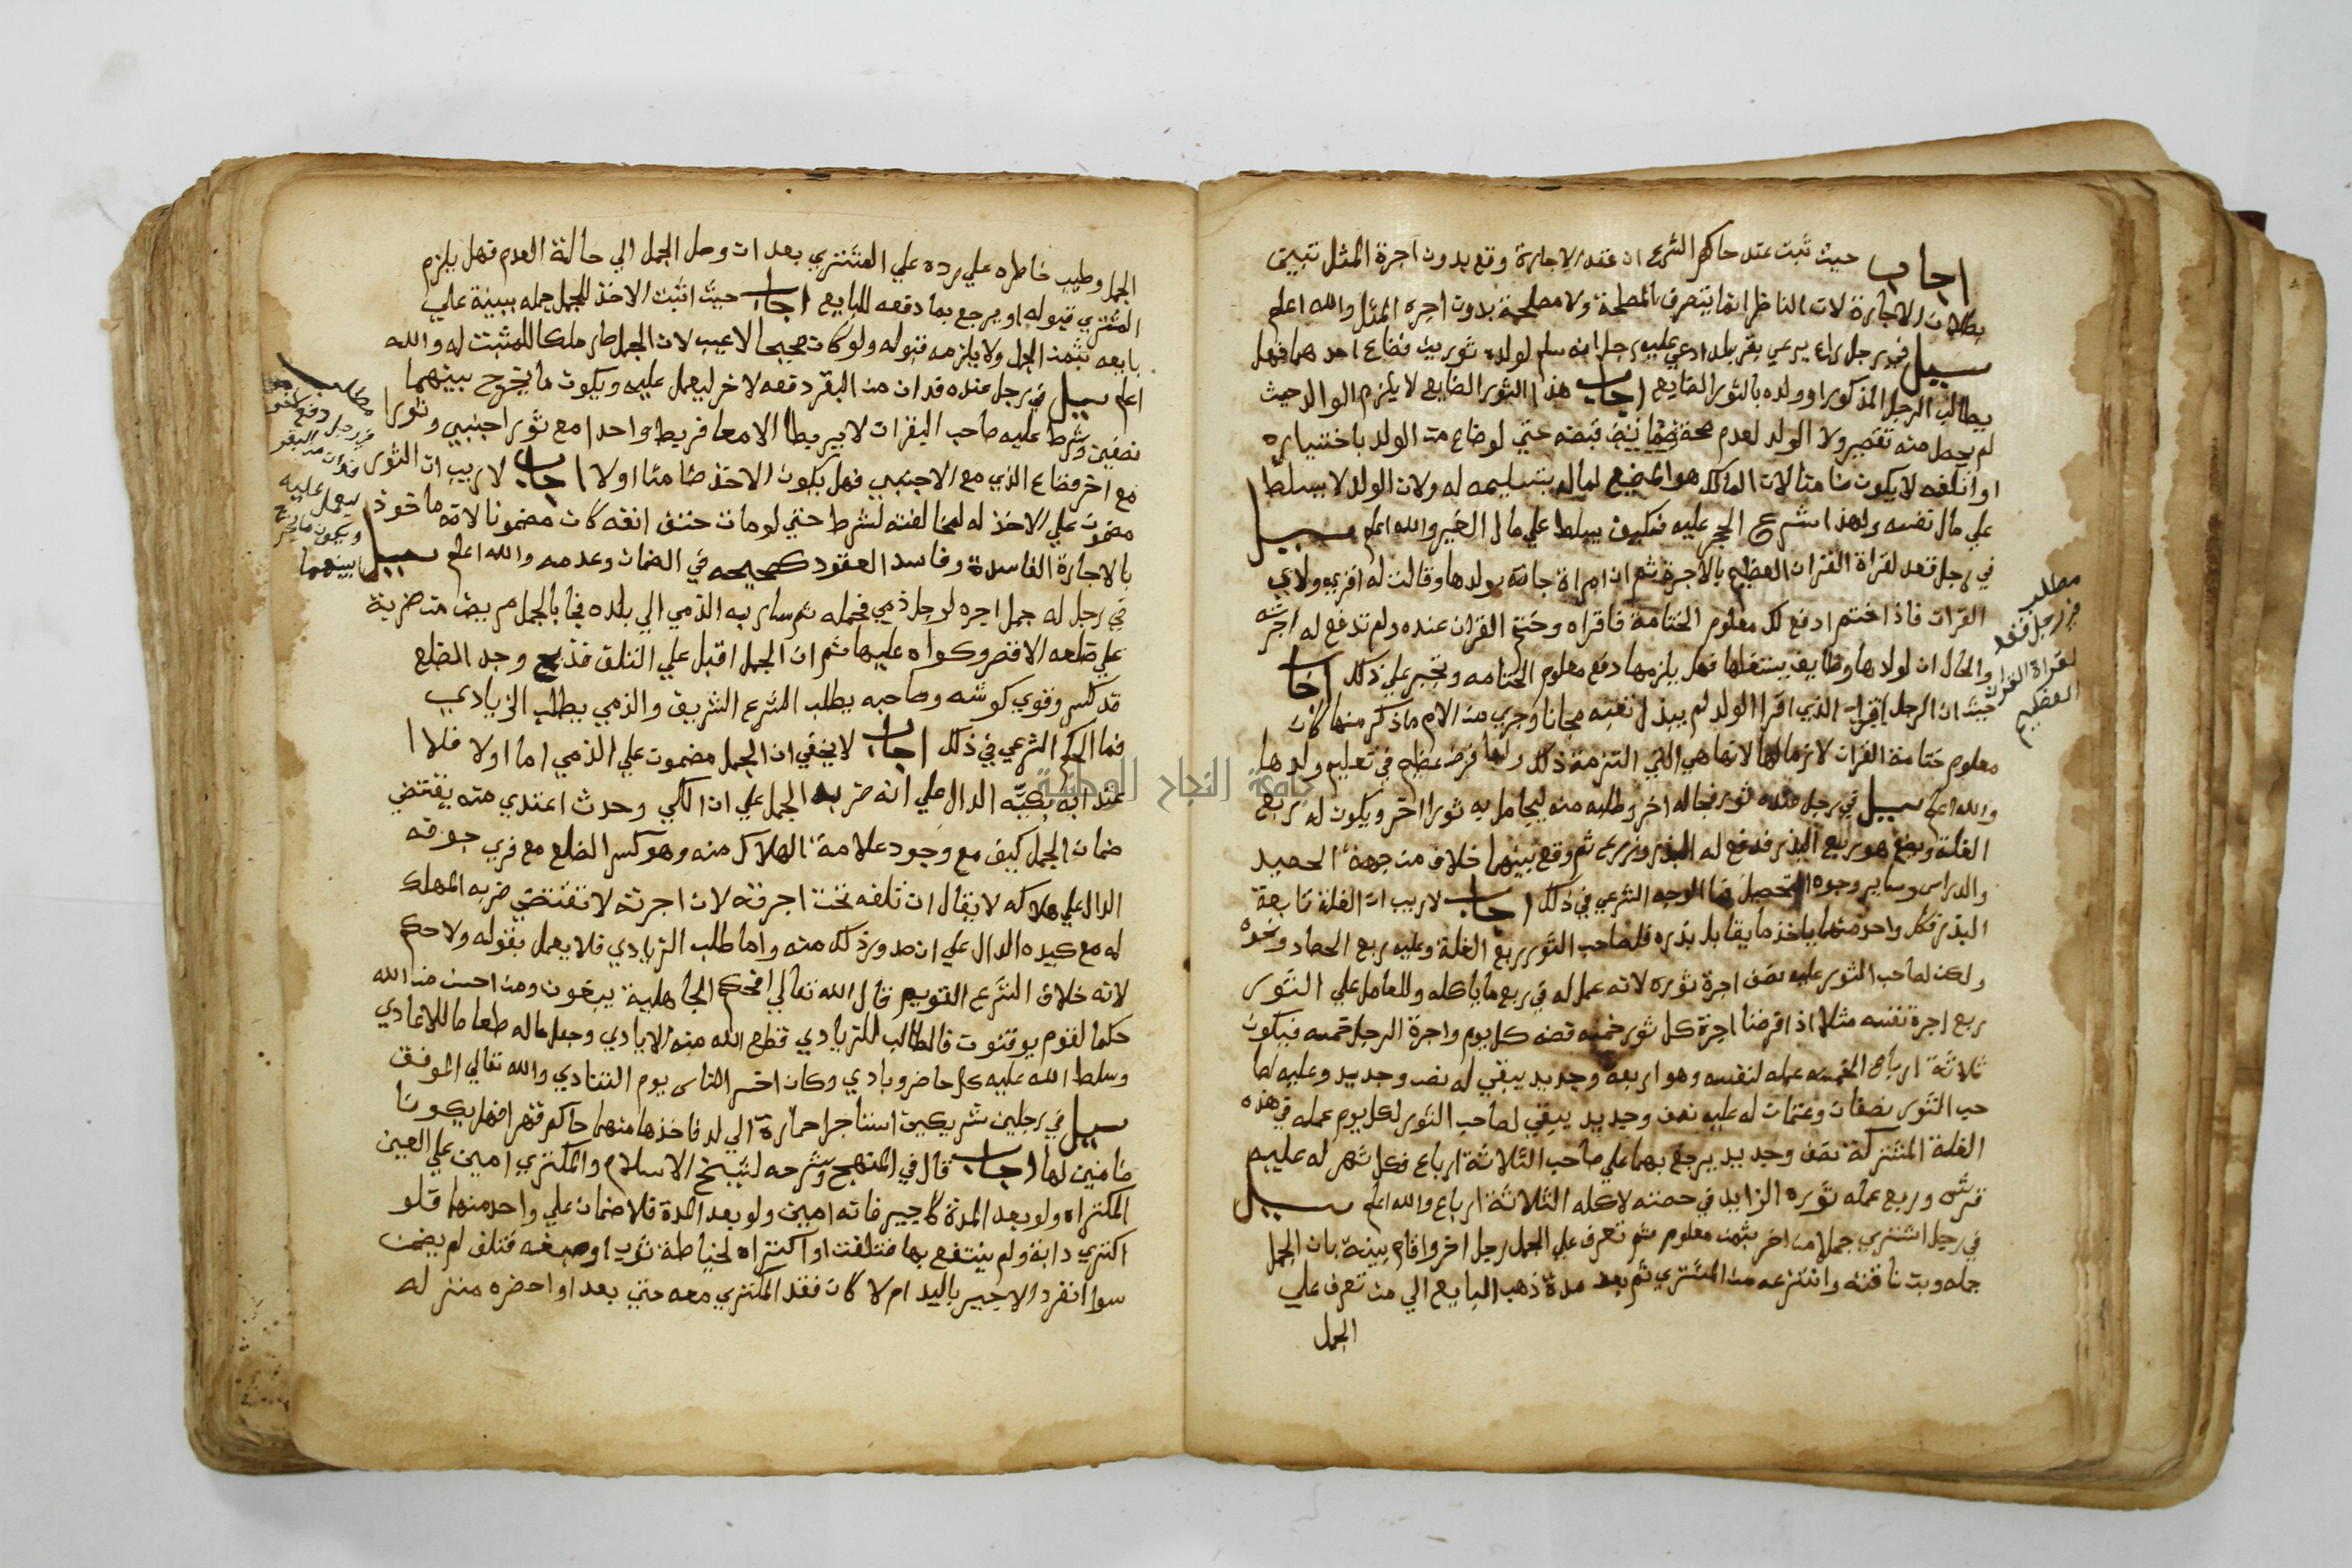 اجاب حيث ثبت عند حاكم الشرع ان عقد الاجارة وقع بدون اجرة المثل تبين
بطلان الاجارة لان الناظر انما يتصرف بالمصلحة ولا مصلحة بدون اجره المثل والله اعلم
سيل في رجل راع يرعي بقر بلد ادعي عليه رجل انه سلم لولده ثورين فضاع احدهما فهل
يطالب الرجل المذكور او ولده بالثور الضايع اجاب هذا الثور الضايع لا يلزم الوالد حيث
لم يحصل منه تقصير ولا الولد لعدم صحة قبضه حتي لو ضاع من الولد باختياره
او اتلفه لا يكون ضامنا لان المالك هو المضيع لماله بتسليمه له ولان الولد لا يسلط
علي مال نفسه ولهذا شرع الحجر عليه فكيف يسلط علي مال الغير والله اعلم سيل
في رجل قعد لقراة القران العظيم بالاجرة ثم ان امراة جاته بولدها وقالت له اقري ولدي
القران فاذا ختم ادفع لك معلوم الختامة فاقراه وختم القران عنده ولم تدفع له اجرته
والحال ان لولدها وظايف يستغلها فهل يلزمها دفع معلوم الختامه وتجبر علي ذلك اجاب
حيث ان الرجل الذي اقرا الولد لم يبذل نفسه مجانا وجري من الام ما ذكر منها كان
معلوم ختامة القران لازما لها لانها هي التي التزمة ذلك ولها غرض عظيم في تعليم ولدها
والله اعلم سيل في رجل عنده ثور فجا له اخر وطلبه منه ليحامل به ثورا اخر ويكون له ربع
الغلة ويضع هو ربع البذر فدفع له البذر وزرع ثم وقع بينهما خلاف من جهة الحصيد
والدراس وساير وجوه التحصيل فما الوجه الشرعي في ذلك اجاب لا ريب ان الغلة تابعة
البذر فكل واحد منهما ياخذ ما يقابل بذره فلصاحب الثور ربع الغلة وعليه ربع الحصاد ونحوه
ولكن لصاحب الثور عليه نصف اجرة ثوره لانه عمل له في ربع ما ياكله وللعامل علي الثور
ربع اجرة نفسه مثلا اذا فرضنا اجرة كل ثور خمسه فضه كل يوم واجرة الرجل خمسه فيكون
ثلاثة ارباع الخمسه عمله لنفسه وهو اربعة وجديد يبقي له نصف وجديد وعليه لصا
حب الثور نصفان وعثمان له عليه نصف وجديد يبقي لصاحب الثور لكل يوم عمله في هذه
الغلة المشتركة نصف وجديد يرجع بهما علي صاحب الثلاثة ارباع فكل شهر له عليه
قرش وربع عمله ثوره الزايد في حصته لاكله الثلاثة ارباع والله اعلم سيل
في رجل اشتري جملا من اخر بثمن معلوم ثم تعرف علي الجمل رجل اخر واقام بينة بان الجمل
جمله وبن ناقته وانتزعه من المشتري ثم بعد مدة ذهب البايع الي من تعرف علي
الجمل
مطلب
في رجل قعد
لقراة القران
العظيم
الجمل وطيب خاطره علي رده علي المشتري بعد ان وصل الجمل الي حالة العدم فهل يلزم
المشتري قبوله او يرجع بما دفعه للبايع اجاب حيث اثبت الاخذ للجمل جمله ببينة علي
بايعه بثمن الجمل ولا يلزمه قبوله ولو كان صحيحا لا عيب لان الجمل صار ملكا للمثبت له والله
اعلم سيل في رجل عنده فدان من البقر دفعه لاخر ليعمل عليه ويكون ما يخرج بينهما
نصفين وشرط عليه صاحب البقرات لا يربطا الا معا فربط واحدا مع ثور اجنبي وثورا
مع اخر فضاع الذي مع الاجنبي فهل يكون الاخذ ضامنا اولا اجاب لا ريب ان الثور
مضمون علي الاخذ له لمخالفته لشرط حتي لو مات حتف انفه كان مضمونا لانه ماخوذ
بالاجارة الفاسدة وفاسد العقود كصحيحه في الضمان وعدمه والله اعلم سيل
في رجل له جمل اجره لرجل ذمي فحمله ثم سار به الذمي الي بلده فجا بالجمل مريضا من ضربة
علي ضلعه الاقصر وكواه عليها ثم ان الجمل اقبل علي التلف فذبح وجد الضلع
قد كسر وقوي كوشه وصاحبه يطلب الشرع الشريف والذمي يطلب الزيادي
فما الحكم الشرعي في ذلك اجاب لا يخفي ان الجمل مضمون علي الذمي اما اولا فلا
عتدايه بكيه الدال علي انه ضربه الجمل علي ان الكي وحدث اعتدي منه يقتضي
ضمان الجمل كيف مع وجود علامة الهلاك منه وهو كسر الضلع مع فري جوفه
الدال علي هلاكه لا يقال ان تلفه تحت اجرته لان اجرته لا تقتضي ضربه المهلك
له مع كيده الدال علي ان صدور ذلك منه واما طلب الزيادي فلا يعمل بقوله ولا حكم
لانه خلاف الشرع القويم قال الله تعالي افحكم الجاهلية يبغون ومن احسن من الله
حكما لقوم يوقنون فالطالب للزيادي قطع الله منه الايادي وجعل ماله طعاما للاعادي
وسلط الله عليه كل حاضر وبادي وكان اخسر الناس يوم التنادي والله تعالي الموفق
سيل في رجلين شريكين استاجرا حمارة الي لد فاخذها منهما حاكم قهرا فهل يكونا
ضامنين لها اجاب قال في المنهج وشرحه لشيخ الاسلام والمكتري امين علي العين
المكتراه ولو بعد المدة كاجير فانه امين ولو بعد المدة فلا ضمان علي واحد منهما فلو
اكتري دابة ولم ينتفع بها فتلفت او اكتراه لخياطة ثوب او صبغه فتلف لم يضمن
سوا انفرد الاجير باليد ام لا كان قعد المكتري معه حتي يعمل او احضره منزله
مطلب
في رجل دفع لاخر
فدان من البقر
يعمل عليه
ويكون ما يخرج
بينهما